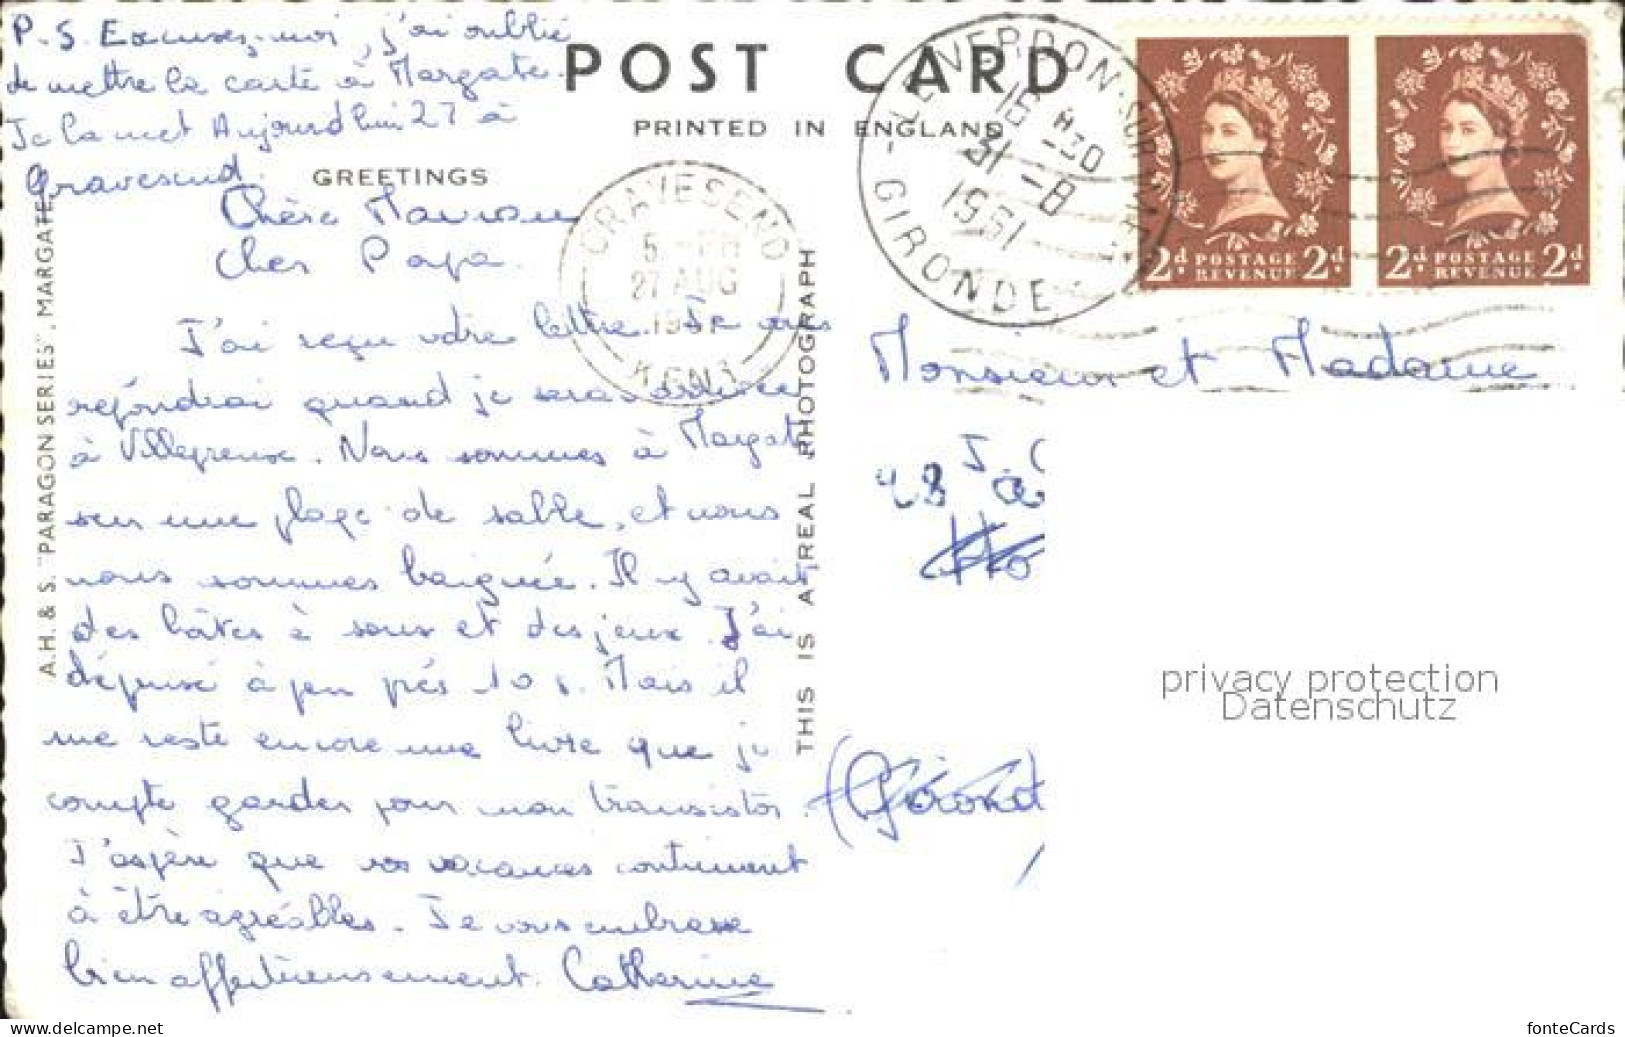 P.S. Excusez-moi, j'ai oublié
de mettre la carte à Margate.
Je la met Aujourd'hui 27 à
Gravesend.
POST CARD
PRINTED IN ENGLAND
GREETINGS
Chère Maman
Cher Papa.
J'ai reçu votre lettre. Je vous
répondrai quand je serai
à Villepreux. Nous sommes à Margate
sur une plage de sable, et nous
nous sommes baignée. Il y avait
des bôites à sous et des jeux. J'ai
dépensé à peu prés 10 s. Mais il
me reste encore une livre que je
compte garder pour mon transistor.
J'espère que vos vacances continuent
à être agréables. Je vous embrasse
bien affectueusement. Catherine
A.H. & S. "PARAGON SERIES", MARGATE,
THIS IS A REAL PHOTOGRAPH
GRAVESEND
5 - PM
27 AUG
KENT
VERDON-SUR-MER
16 H30
31 - 8
1961
GIRONDE
2d POSTAGE REVENUE 2d
2d POSTAGE REVENUE 2d
Monsieur et Madame
privacy protection
Datenschutz
www.delcampe.net
fonteCards